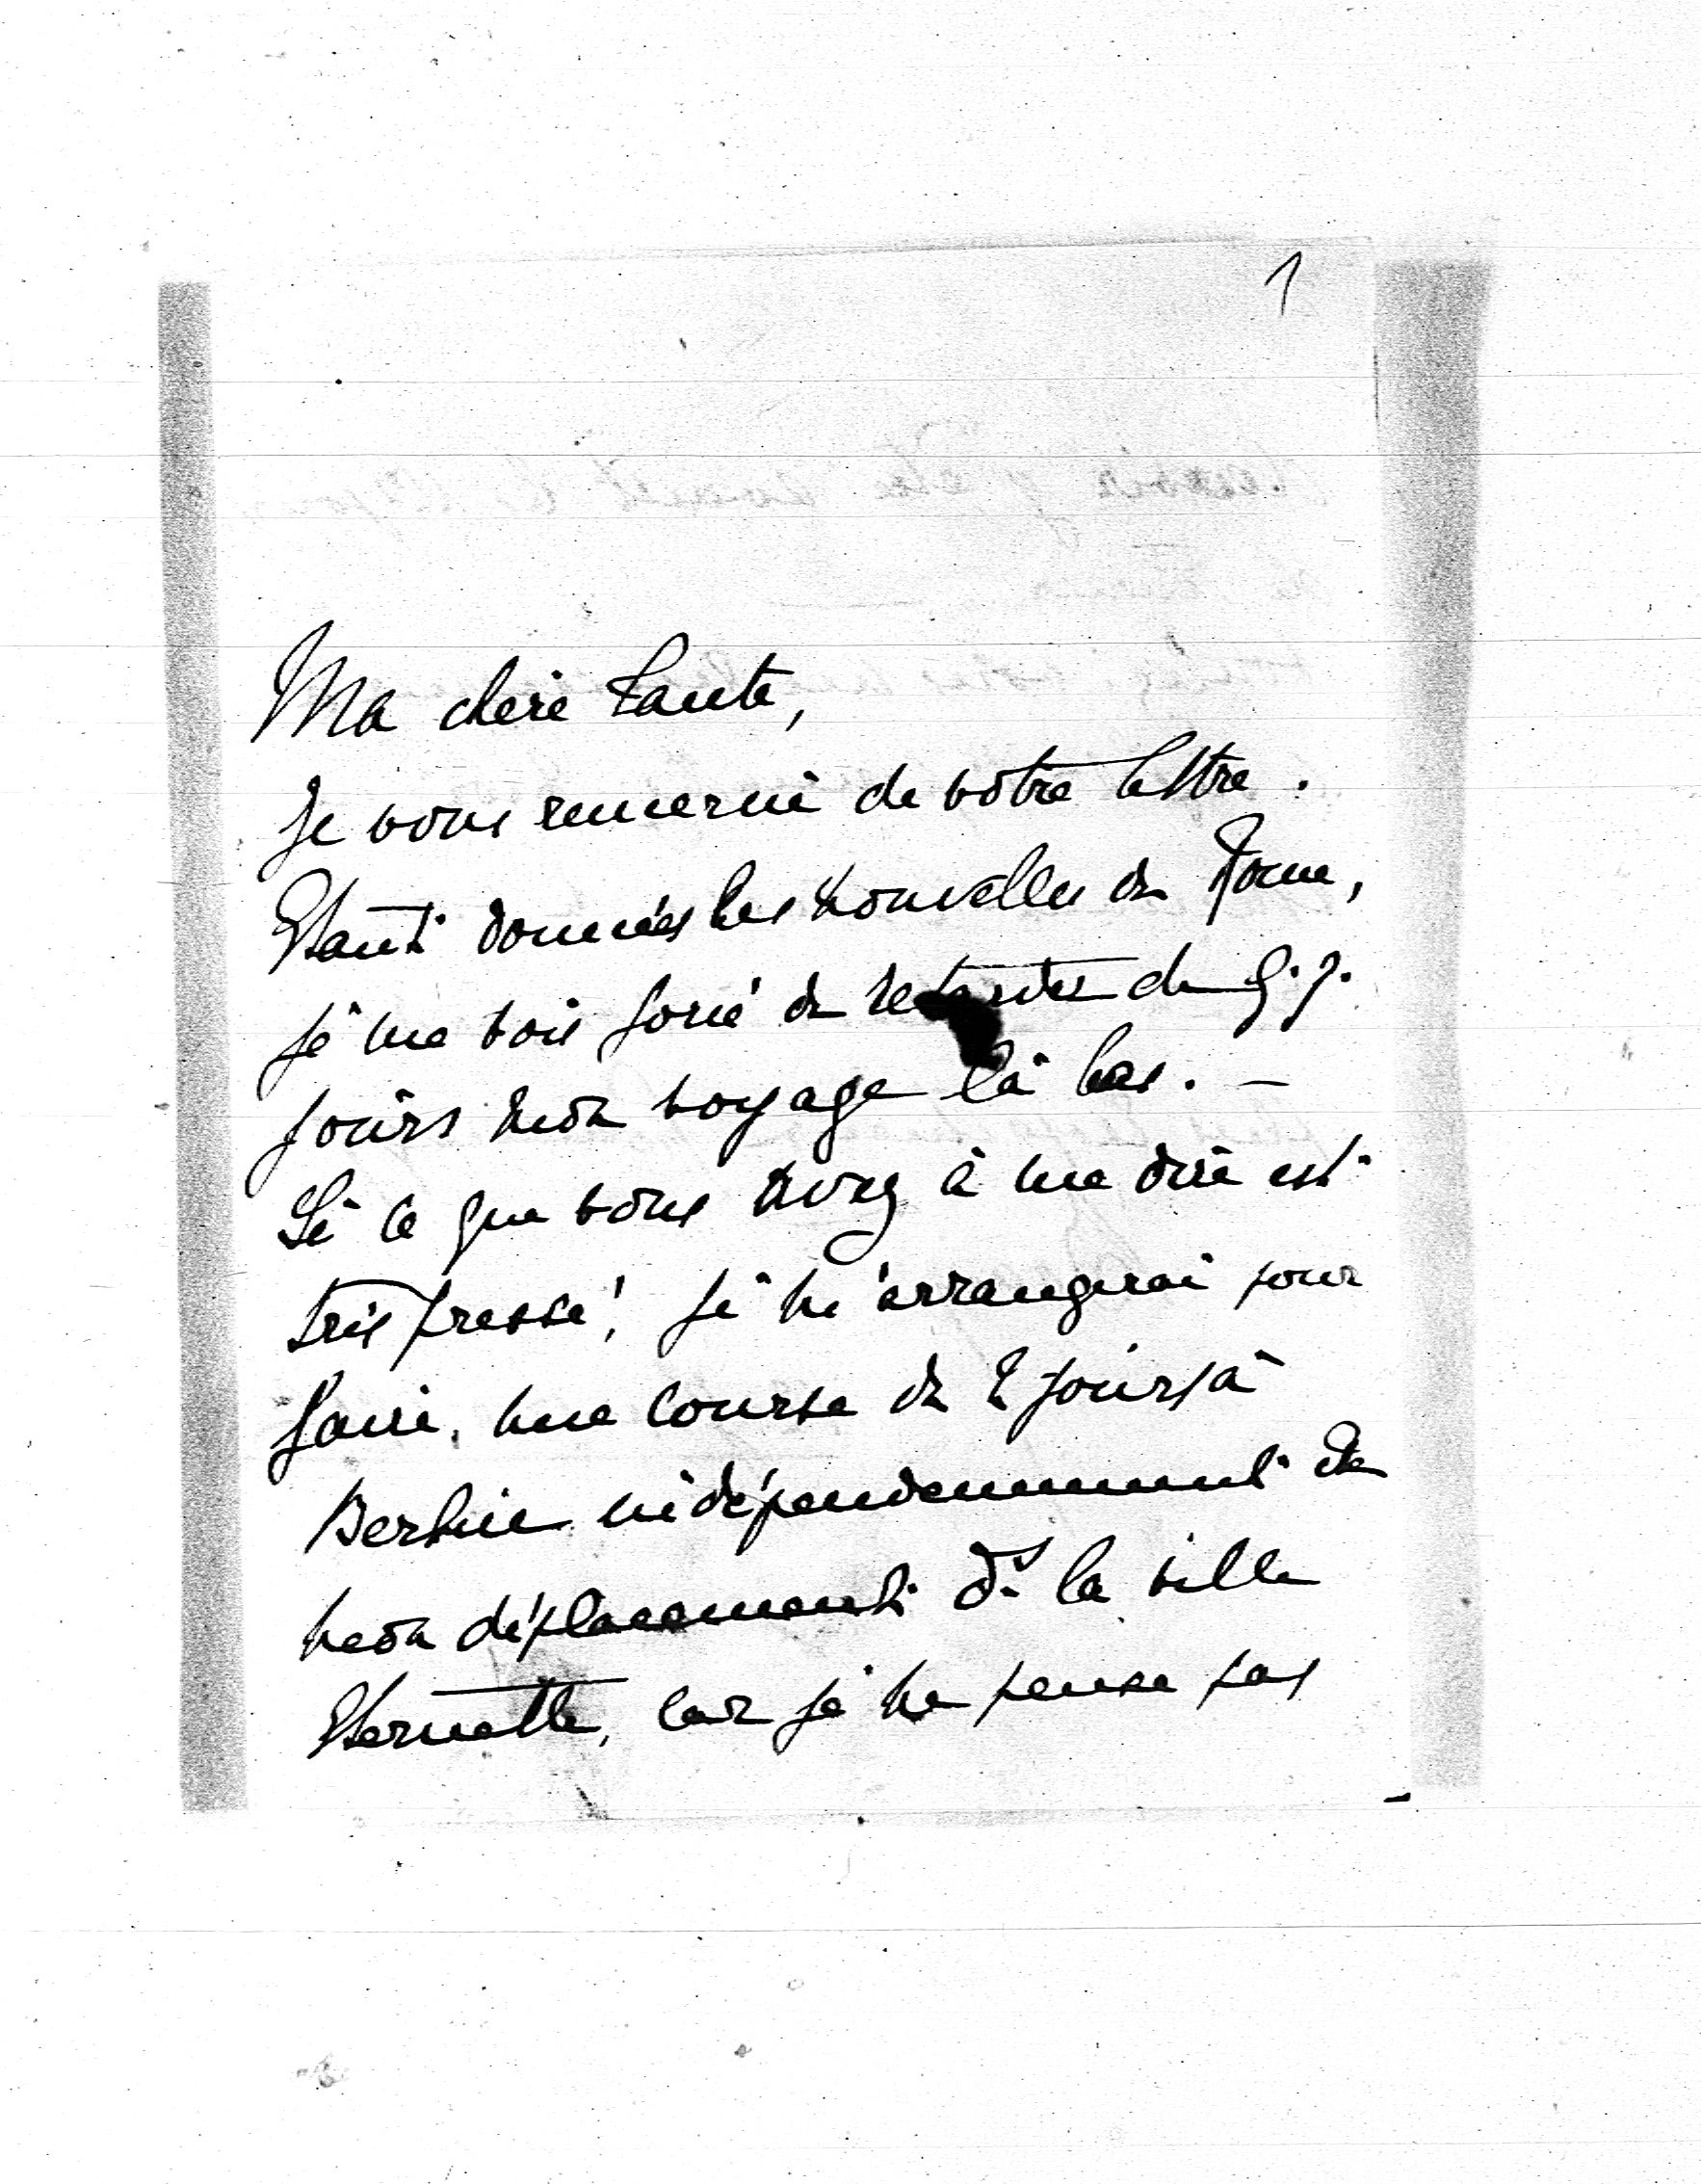 1
Ma chère tante,
Je vous remercie de votre lettre.
Etant données les nouvelles de Rome,
je me vois forcé de retarder de q.q.
jours mon voyage là bas. –
Si ce que vous avez à me dire est
très pressé, je m'arrangerai pour
faire une course de 2 jours à
Berlin indépendemment de
mon déplacement ds la ville
Eternelle, car je ne pense pas